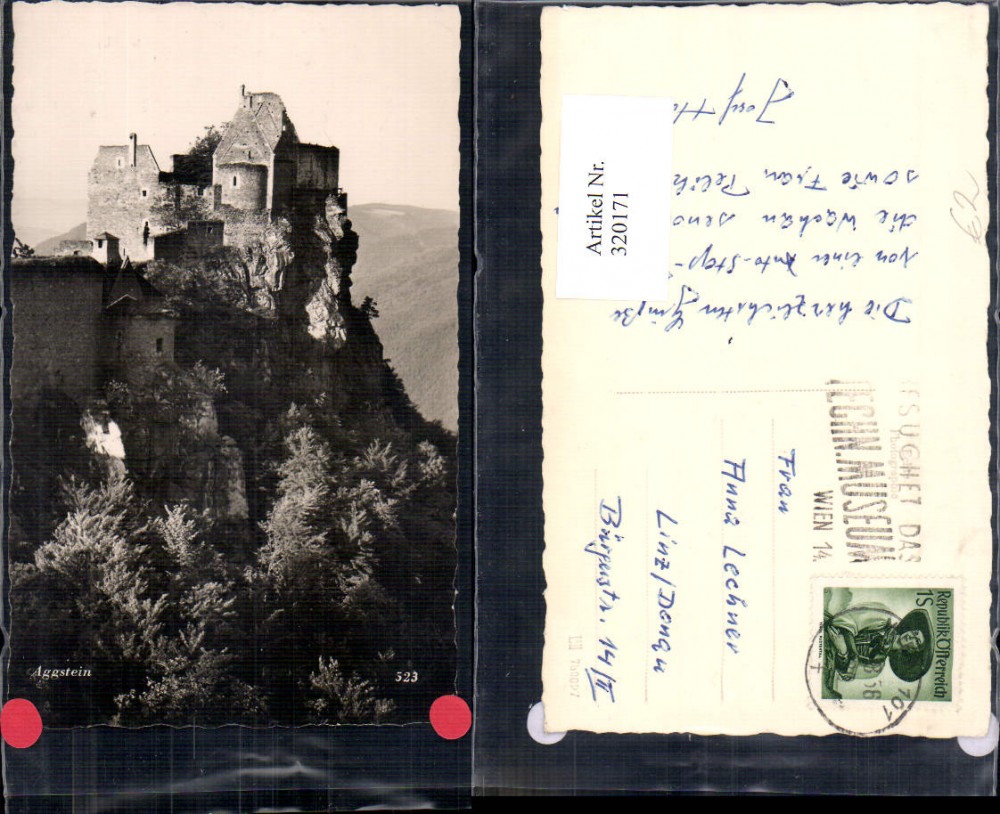 Aggstein
523
Artikel Nr.
320171
€2
Die herzlichsten Grüße
von einer Auto-Stop-
die Wachau send
sowie Frau Pelik
Josef
BESUCHET DAS
TECHN. MUSEUM
WIEN 14
Republik Österreich
1S
Frau
Anna Lechner
Linz/Donau
Bürgerstr. 14/II